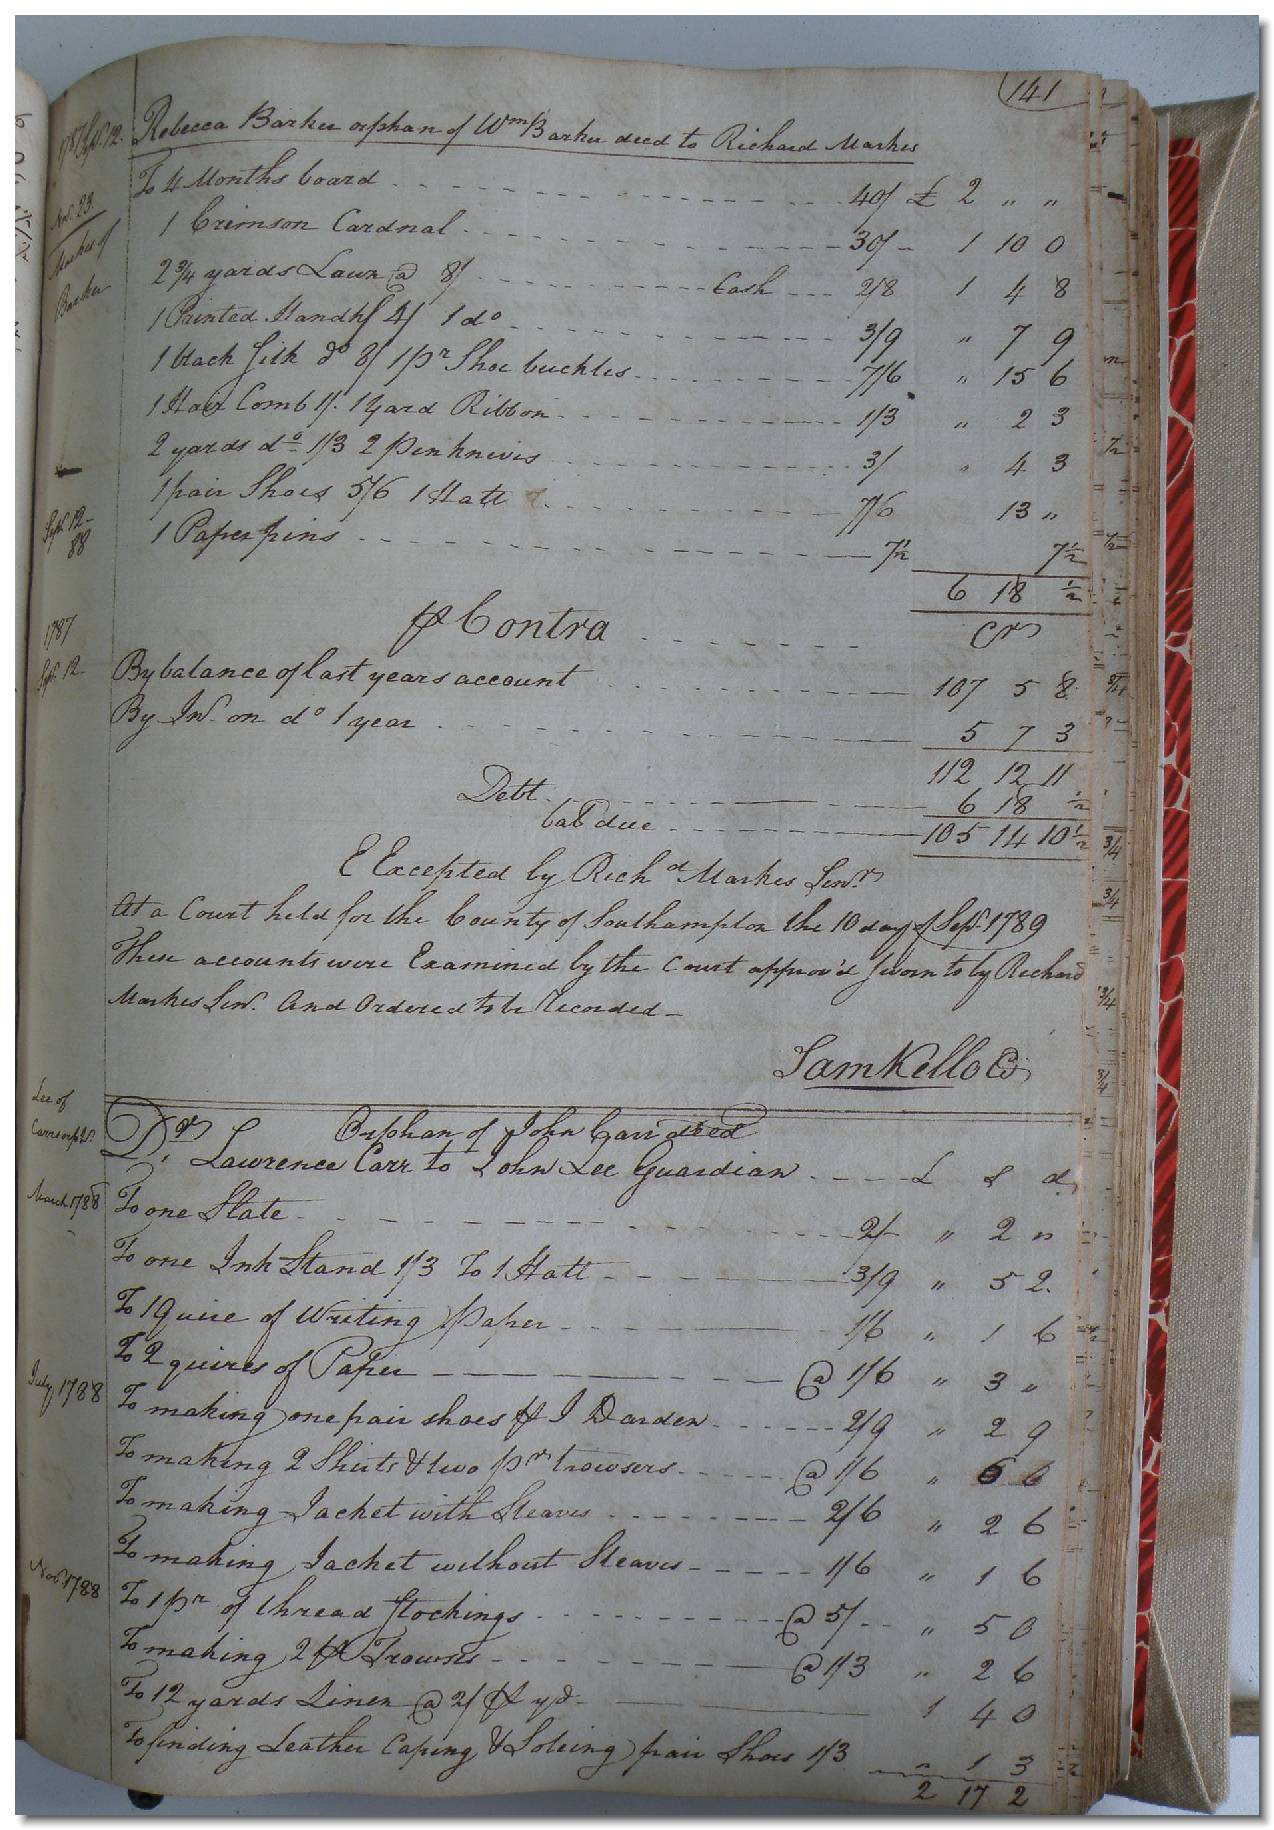 141
1787 Sept. 12. Rebecca Barker orphan of Wm Barker decd to Richard Markes
To 4 Months board 40/ £ 2 " "
Nov. 23
Markes of
Barker
1 Crimson Cardnal 30/- 1 10 0
2 3/4 yards Lawn @ 8/ Cash 2/8 1 4 8
1 Printed Handkf 4/ 1 do 3/9 " 7 9
1 black Silk do 8/ 1 pr Shoe buckles 7/6 " 15 6
1 Hair Comb 1/. 1 yard Ribbon 1/3 " 2 3
2 yards do 1/3 2 Penknives 3/ " 4 3
1 pair Shoes 5/6 1 Hatt 7/6 13 "
Sept. 12-
88
1 Paper pins 7 1/2 7 1/2
6 18 1/2
1787
Sept. 12
Contra Cr
By balance of last years account 107 5 8
By Int. on do 1 year 5 7 3
112 12 11
Debt 6 18 1/2
bal due 105 14 10 1/2
E Excepted by Richd Markes Senr
At a Court held for the County of Southampton the 10 day of Sept. 1789
These accounts were Examined by the Court approv'd Sworn to by Richard
Markes Senr. And Ordered to be Recorded -
Sam Kello Cl
Lee of
Carrs orph
Dr. Orphan of John Carr decd
Lawrence Carr to John Lee Guardian £ S d
March 1788 To one Slate 2/- " 2 "
To one Ink Stand 1/3 To 1 Hatt 3/9 " 5 2.
To 1 Quire of Writing Paper 1/6 " 1 6
To 2 quires of Paper @ 1/6 " 3 "
July 1788 To making one pair shoes ⅌ J Darden 2/9 " 2 9
To making 2 Shirts & two pr trowsers @ 1/6 " 6 0
To making Jacket with Sleaves 2/6 " 2 6
To making Jacket without Sleaves 1/6 " 1 6
Nov 1788 To 1 pr of thread Stockings @ 5/ " 5 0
To making 2 pr Trowsers @ 1/3 " 2 6
To 12 yards Linen @ 2/ ⅌ yd 1 4 0
To finding Leather Caping & Soleing pair Shoes 1/3 " 1 3
2 17 2